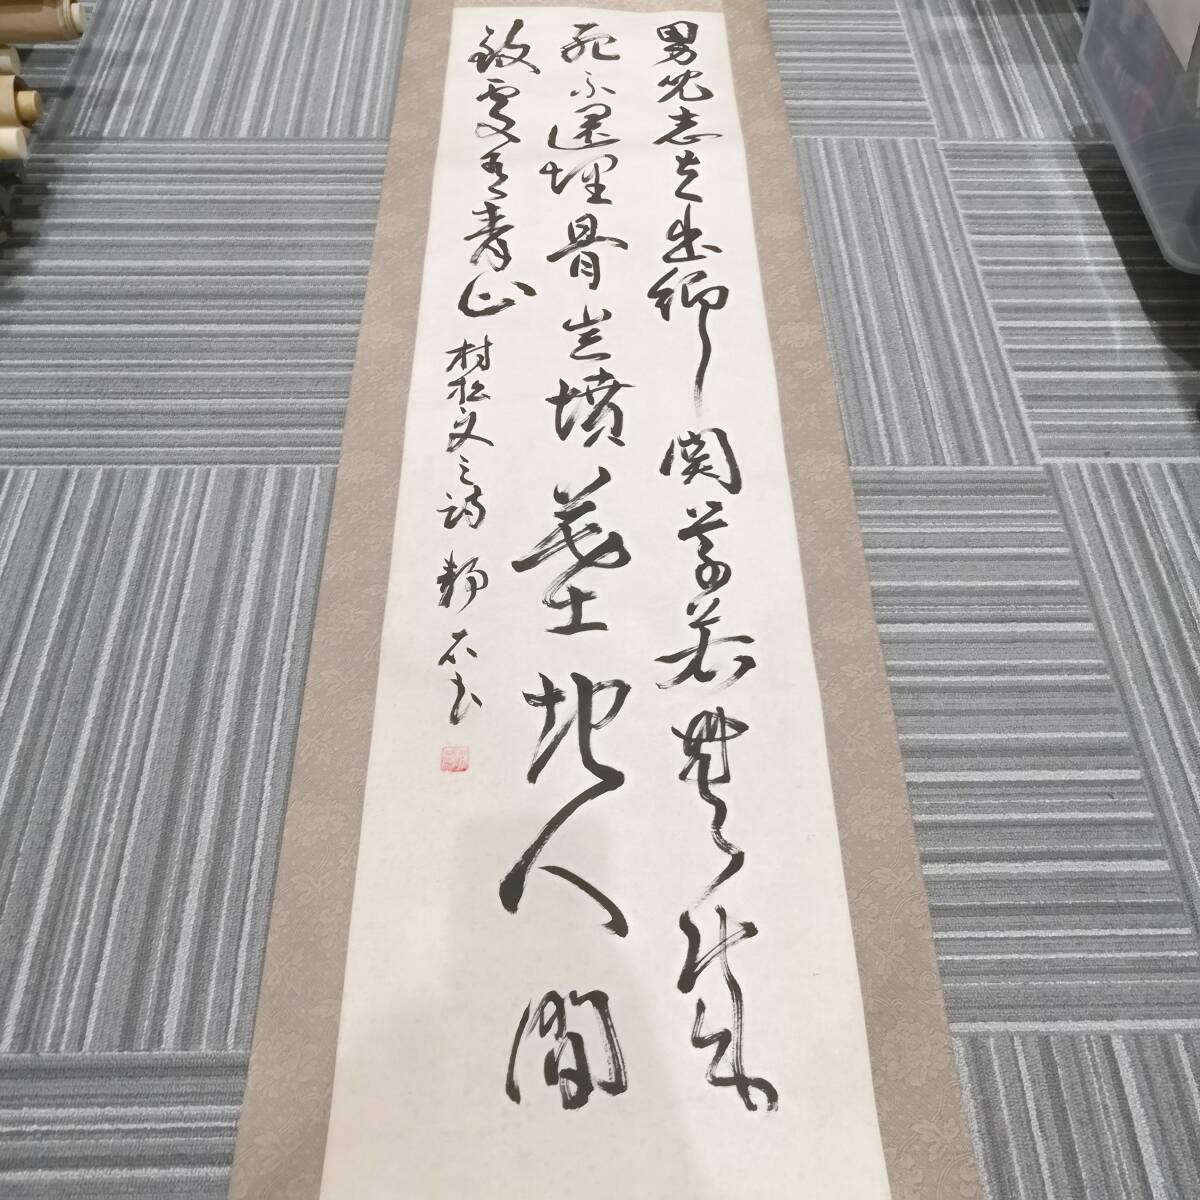 男児志立出郷関学若無成
死不還埋骨豈墳墓地人間
到處有青山 村松文三詩 静石書